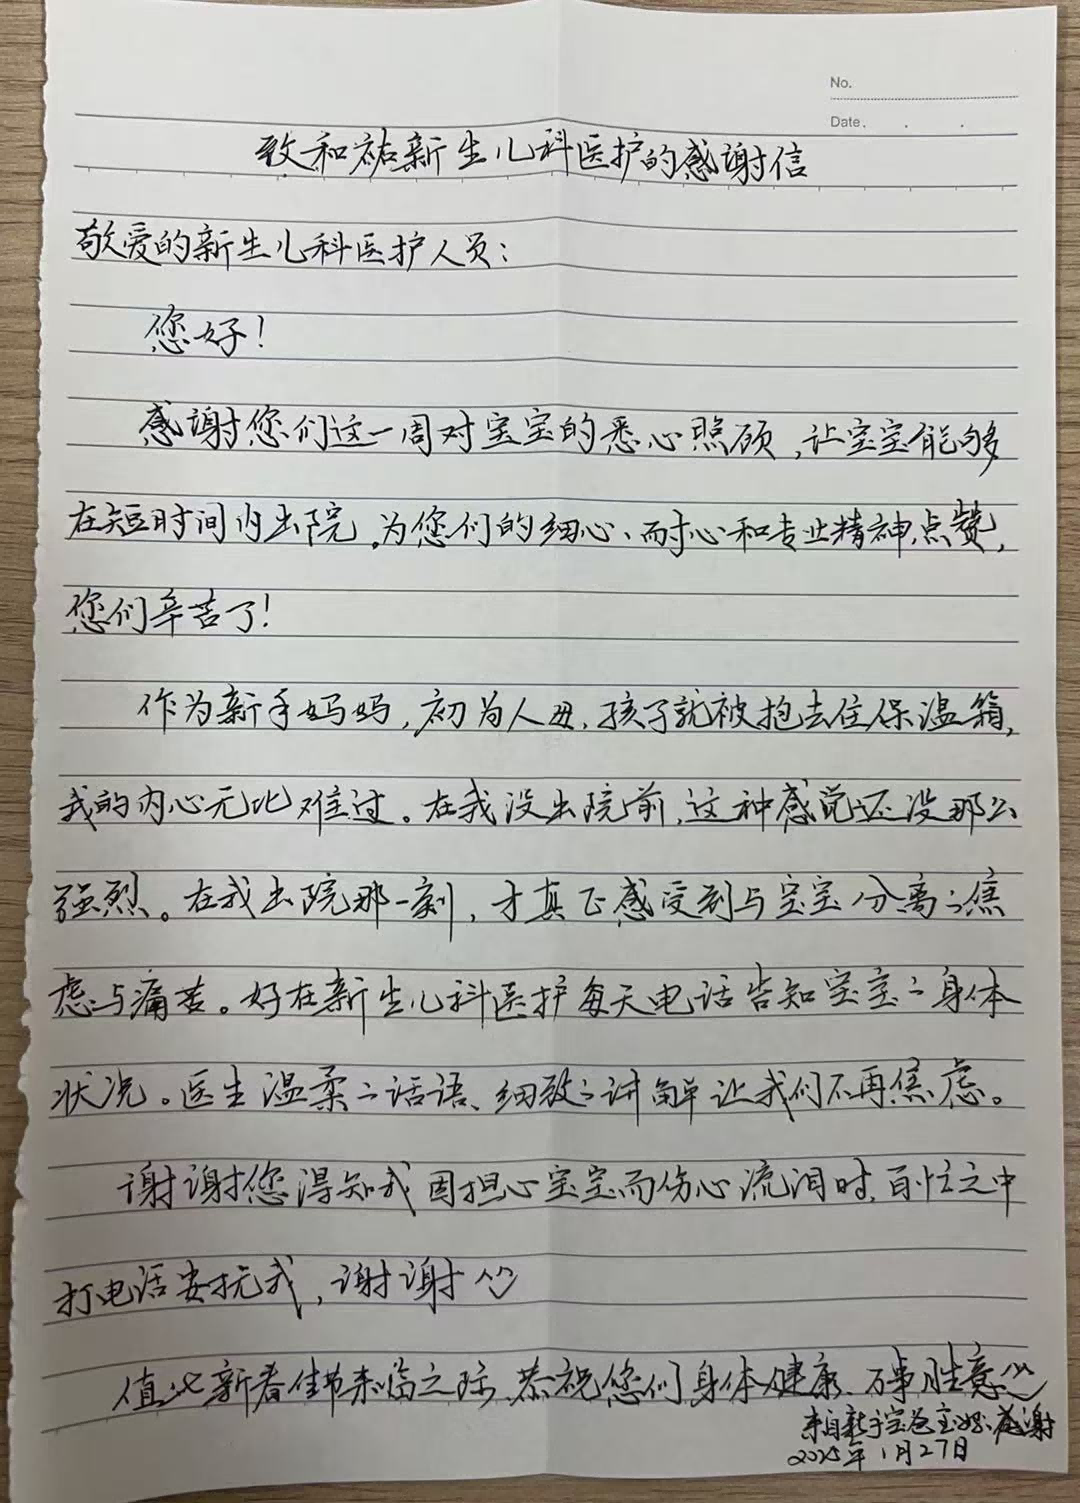 No.
Date . . .
致和祐新生儿科医护的感谢信
敬爱的新生儿科医护人员:
您好!
感谢您们这一周对宝宝的悉心照顾,让宝宝能够
在短时间内出院。为您们的细心、耐心和专业精神点赞,
您们辛苦了!
作为新手妈妈,初为人母,孩子就被抱去住保温箱,
我的内心无比难过。在我没出院前,这种感觉还没那么
强烈。在我出院那一刻,才真正感受到与宝宝分离之焦
虑与痛苦。好在新生儿科医护每天电话告知宝宝之身体
状况。医生温柔之话语、细致之讲解让我们不再焦虑。
谢谢您得知我因担心宝宝而伤心流泪时,百忙之中
打电话安抚我,谢谢^^
值此新春佳节来临之际,恭祝您们身体健康、万事胜意^^
来自新手宝爸宝妈感谢
2025年1月27日